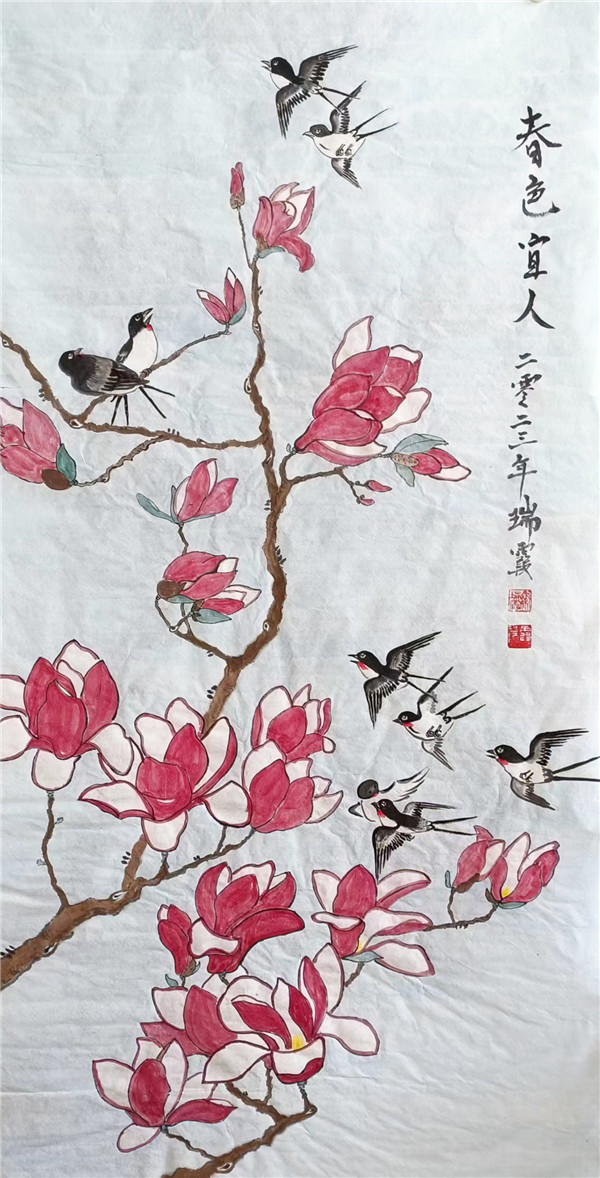 春色宜人
二零二三年瑞霞